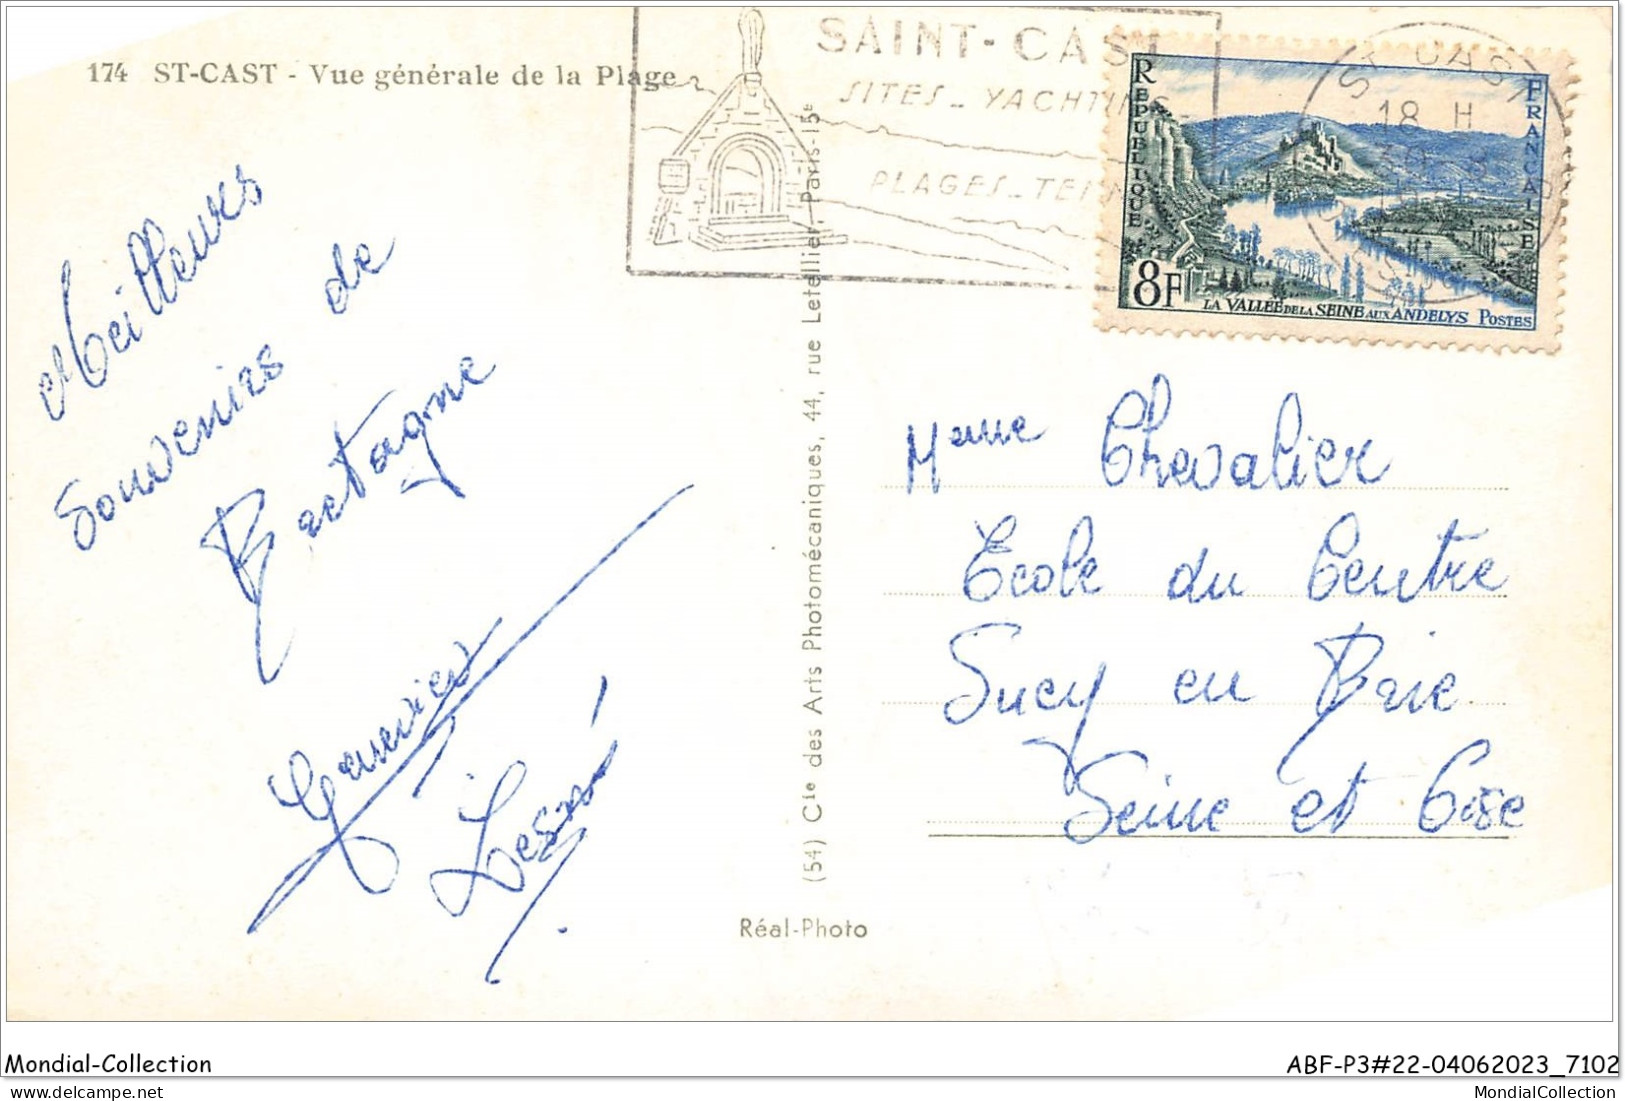 174 ST-CAST - Vue générale de la Plage
SAINT-CAST
SITES - YACHTING -
PLAGES - TENNIS
ST CAST
18 H
RÉPUBLIQUE
FRANÇAISE
8F
LA VALLÉE DE LA SEINE AUX ANDELYS POSTES
Meilleurs
souvenirs de
Bretagne
Geneviève
(54) Cie des Arts Photomécaniques, 44, rue Letellier, Paris-15e
Réal-Photo
Mme Chevalier
Ecole du Centre
Sucy en Brie
Seine et Oise
Mondial-Collection
ABF-P3#22-04062023_7102
MondialCollection